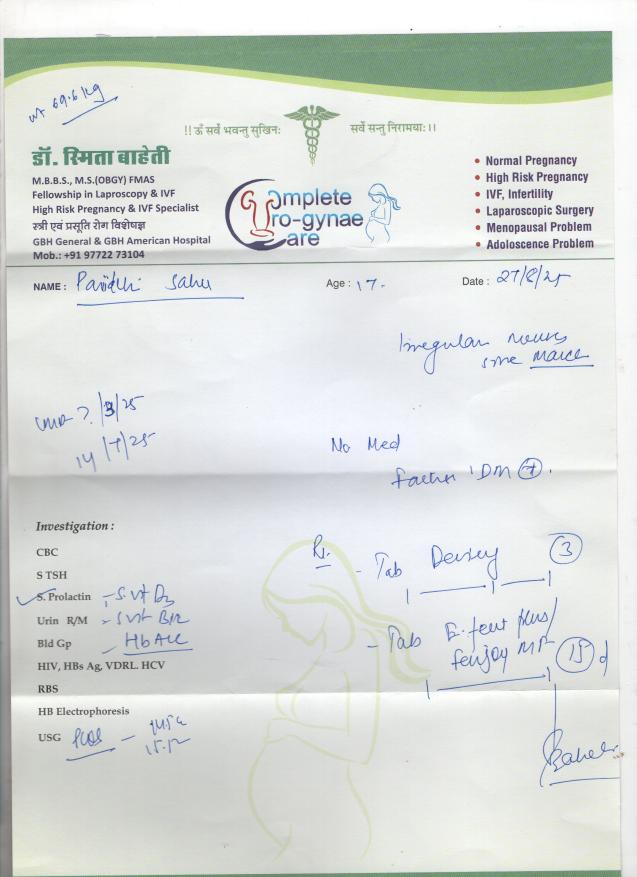 wt 69.6 kg
!! ॐ सर्वे भवन्तु सुखिनः सर्वे सन्तु निरामयाः।।
डॉ. स्मिता बाहेती
M.B.B.S., M.S.(OBGY) FMAS
Fellowship in Laproscopy & IVF
High Risk Pregnancy & IVF Specialist
स्त्री एवं प्रसूति रोग विशेषज्ञ
GBH General & GBH American Hospital
Mob.: +91 97722 73104
Complete
Uro-gynae
Care
• Normal Pregnancy
• High Risk Pregnancy
• IVF, Infertility
• Laparoscopic Surgery
• Menopausal Problem
• Adoloscence Problem
NAME : Sahu Age : 17 Date : 27/8/25
Irregular menses
since March
LMP ? /3/25
14/7/25
No Med
Father DM +
Investigation :
CBC
S TSH
S. Prolactin - S. vit D3
Urin R/M - S vit B12
Bld Gp - HbA1c
HIV, HBs Ag, VDRL. HCV
RBS
HB Electrophoresis
USG PCOS -
Rx
- Tab 3
- Tab plus/
MF 15 d